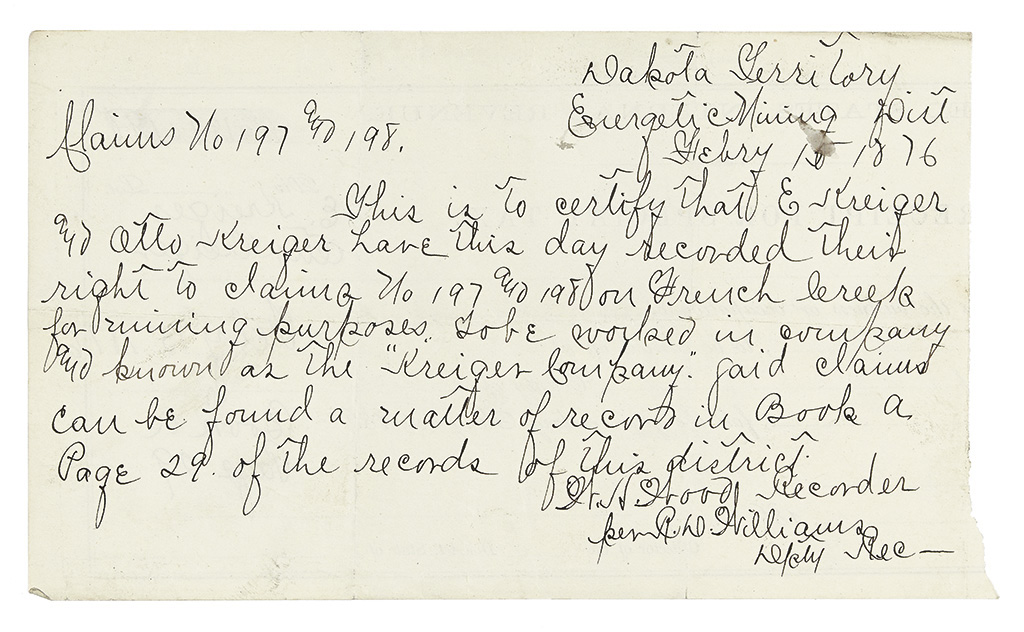 Dakota Territory
Energetic Mining Dist
Claims No 197 and 198.
Febry 15 1876
This is to certify that E Kreiger
and Otto Kreiger have this day recorded their
right to claims No 197 and 198 on French Creek
for mining purposes. To be worked in company
and known as the "Kreiger Company". Said claims
can be found a matter of record in Book A.
Page 29. of the records of this district.
W. H. Wood Recorder
per R. D. Williams
Dpty Rec —